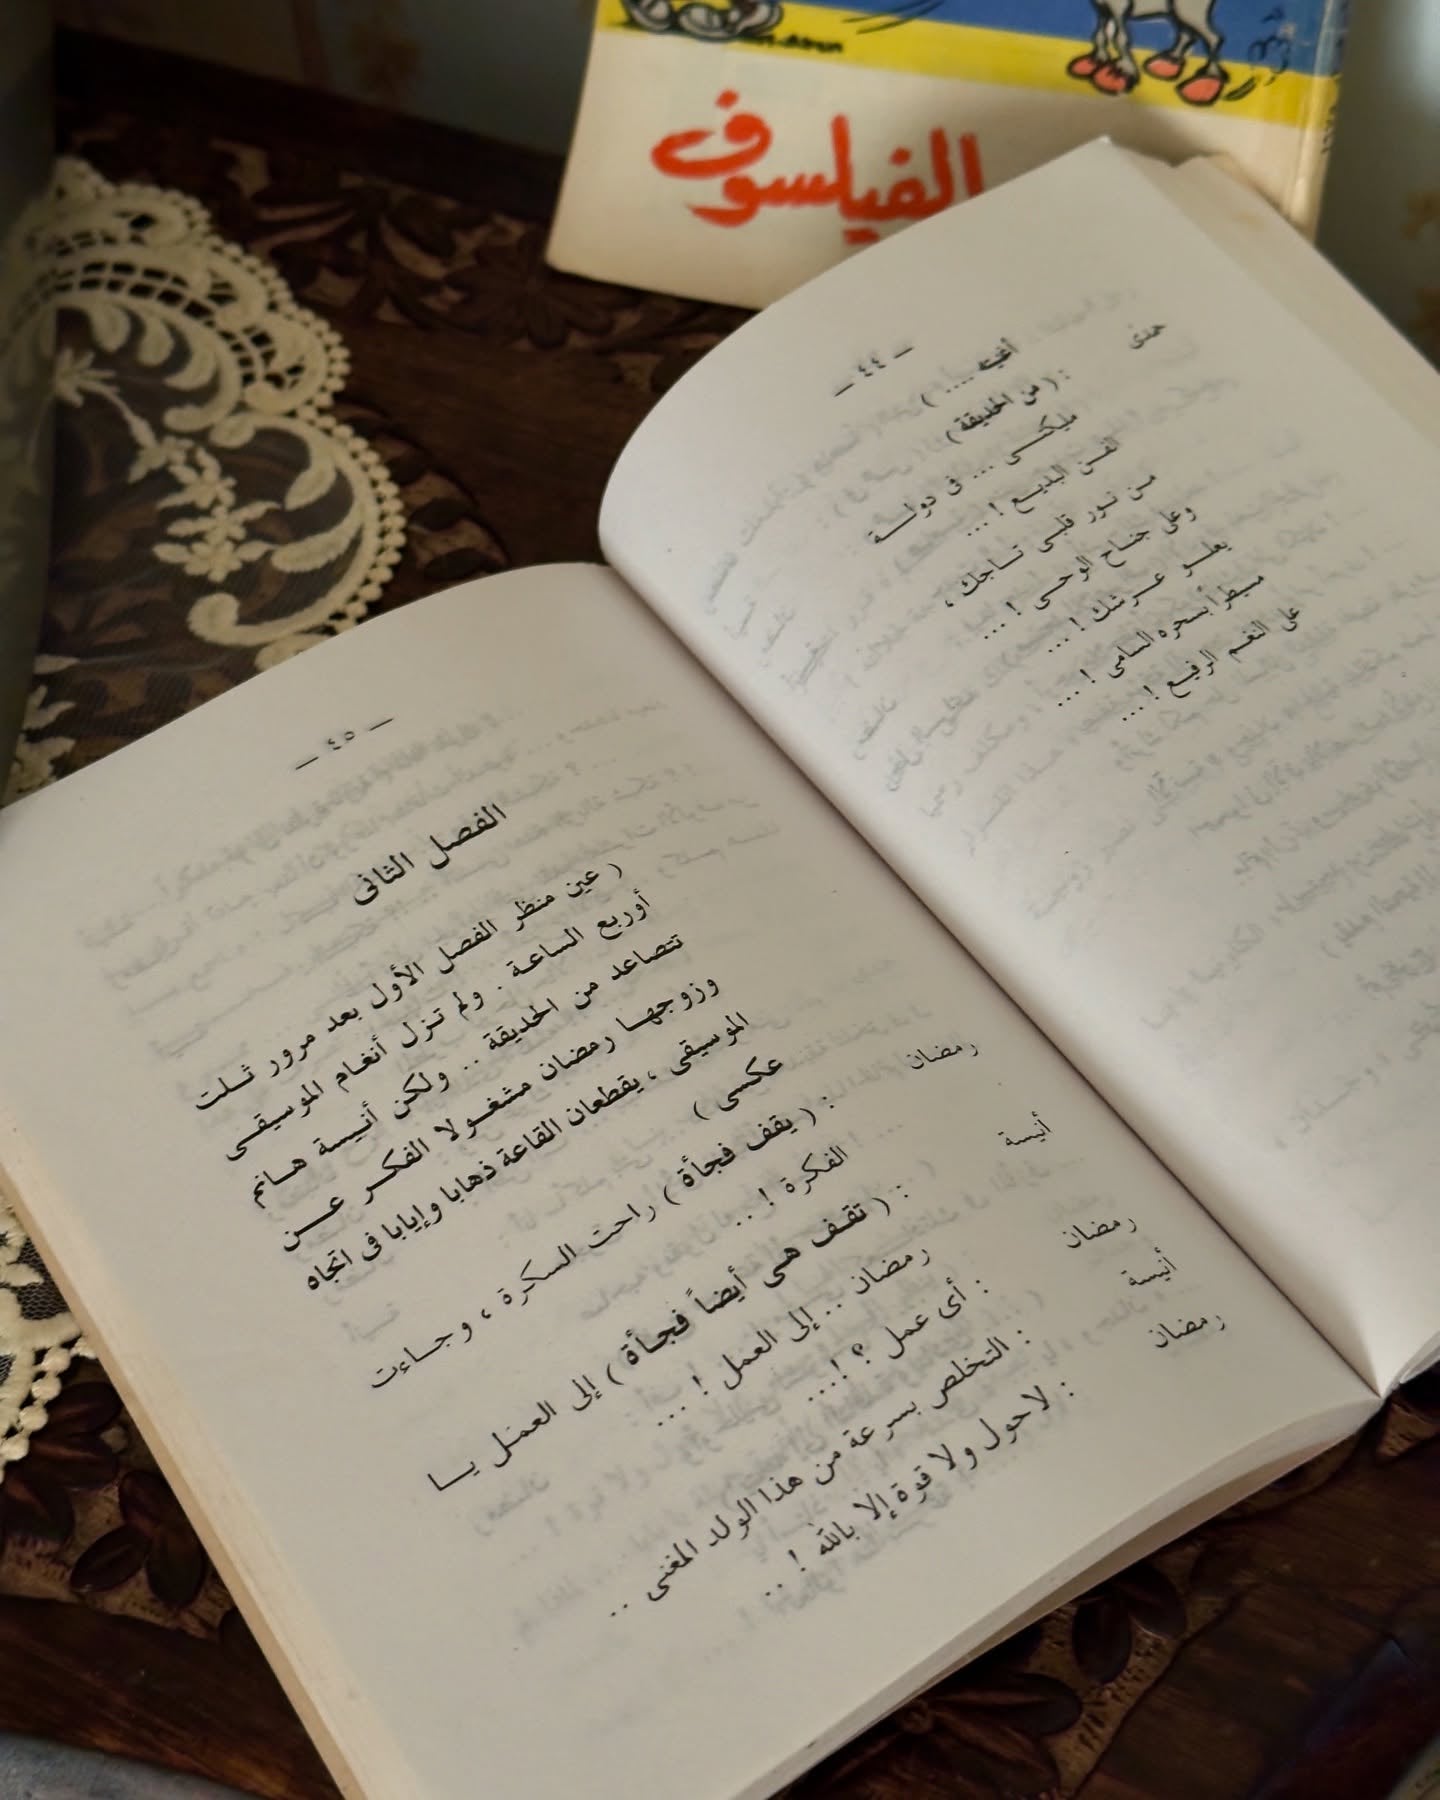 الفيلسوف
— ٤٤ —
أغنية .... )
حمدى : ( من الحديقة )
مليكتى ... فى دولة
الفن البديع ! ...
من نور قلبى تاجك ،
وعلى جناح الوحى ! ...
يعلو عرشك ! ...
مسيطرا بسحره السامى ! ...
على النغم الرفيع ! ...
— ٤٥ —
الفصل الثانى
( عين منظر الفصل الأول بعد مرور ثلث
أوربع الساعة . ولم تزل أنغام الموسيقى
تتصاعد من الحديقة .. ولكن أنيسة هانم
وزوجها رمضان مشغولا الفكر عن
الموسيقى ، يقطعان القاعة ذهابا وإيابا فى اتجاه
عكسى )
رمضان : ( يقف فجأة ) راحت السكرة ، وجاءت
الفكرة ! ..
أنيسة : ( تقف هى أيضاً فجأة ) إلى العمل يا
رمضان .. إلى العمل ! ...
رمضان : أى عمل ؟ ! ...
أنيسة : التخلص بسرعة من هذا الولد المغنى ..
رمضان : لاحول ولا قوة إلا بالله ! ..